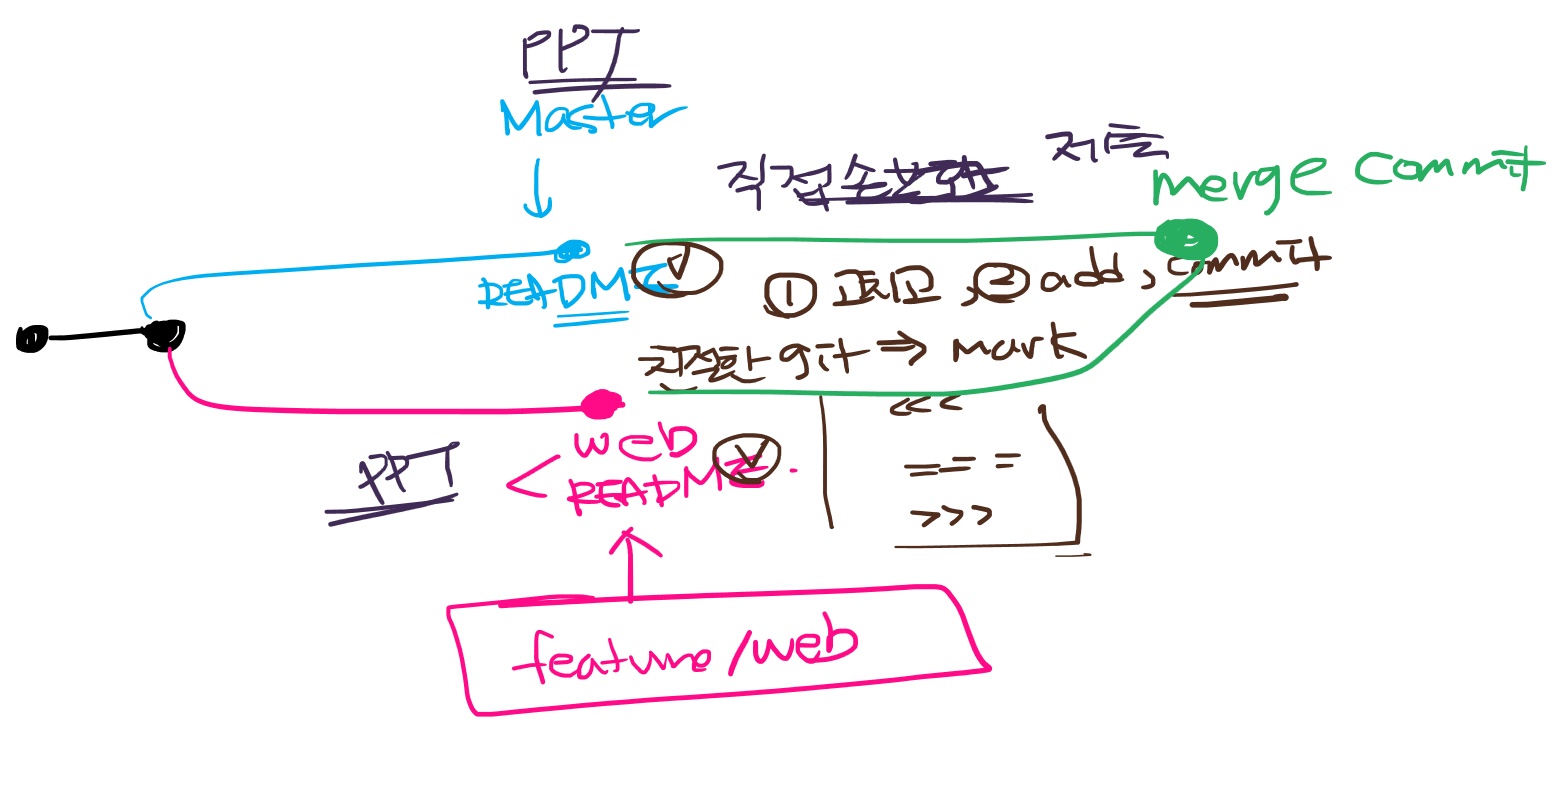 PPT
Master
직접 저는
merge commit
README
① 고르고, ② add, commit
친절한 git ⇒ mark
<<<
===
>>>
web
README
PPT
feature/web